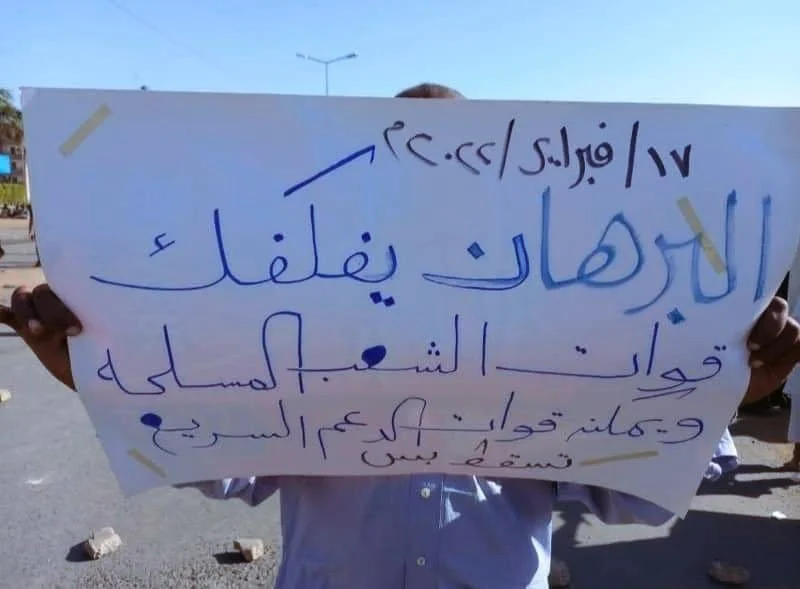 ١٧/فبراير/٢٠٢٢م
البرهان يفكفك
قوات الشعب المسلحه
ويمكن قوات الدعم السريع
تسقط بس